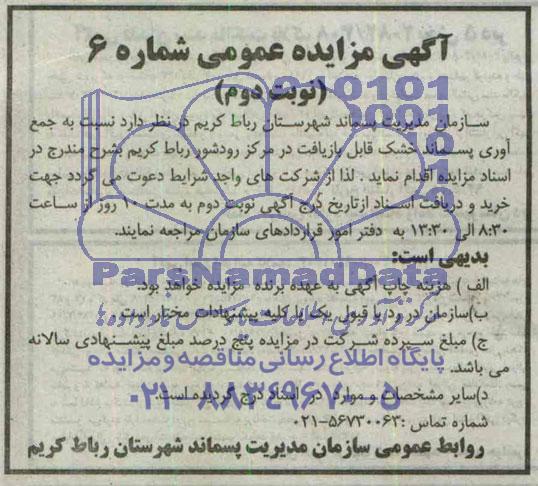 آگهی مزایده عمومی شماره ۶
(نوبت دوم)
سازمان مدیریت پسماند شهرستان رباط کریم در نظر دارد نسبت به جمع
آوری پسماند خشک قابل بازیافت در مرکز رودشور رباط کریم بشرح مندرج در
اسناد مزایده اقدام نماید . لذا از شرکت های واجد شرایط دعوت می گردد جهت
خرید و دریافت اسناد ازتاریخ درج آگهی نوبت دوم به مدت ۱۰ روز از ساعت
۸:۳۰ الی ۱۳:۳۰ به دفتر امور قراردادهای سازمان مراجعه نمایند.
بدیهی است:
ParsNamadData
الف ) هزینه چاپ آگهی به عهده برنده مزایده خواهد بود.
ب)سازمان در رد یا قبولی یک یا کلیه پیشنهادات مختار است و
ج) مبلغ سپرده شرکت در مزایده پنج درصد مبلغ پیشنهادی سالانه
پایگاه اطلاع رسانی مناقصه و مزایده
می باشد.
د)سایر مشخصات و موارد در اسناد درج گردیده است.
۰۲۱-۸۸۳۴۹۶۷۰-۵
شماره تماس :۵۶۷۳۰۰۶۳-۰۲۱
روابط عمومی سازمان مدیریت پسماند شهرستان رباط کریم